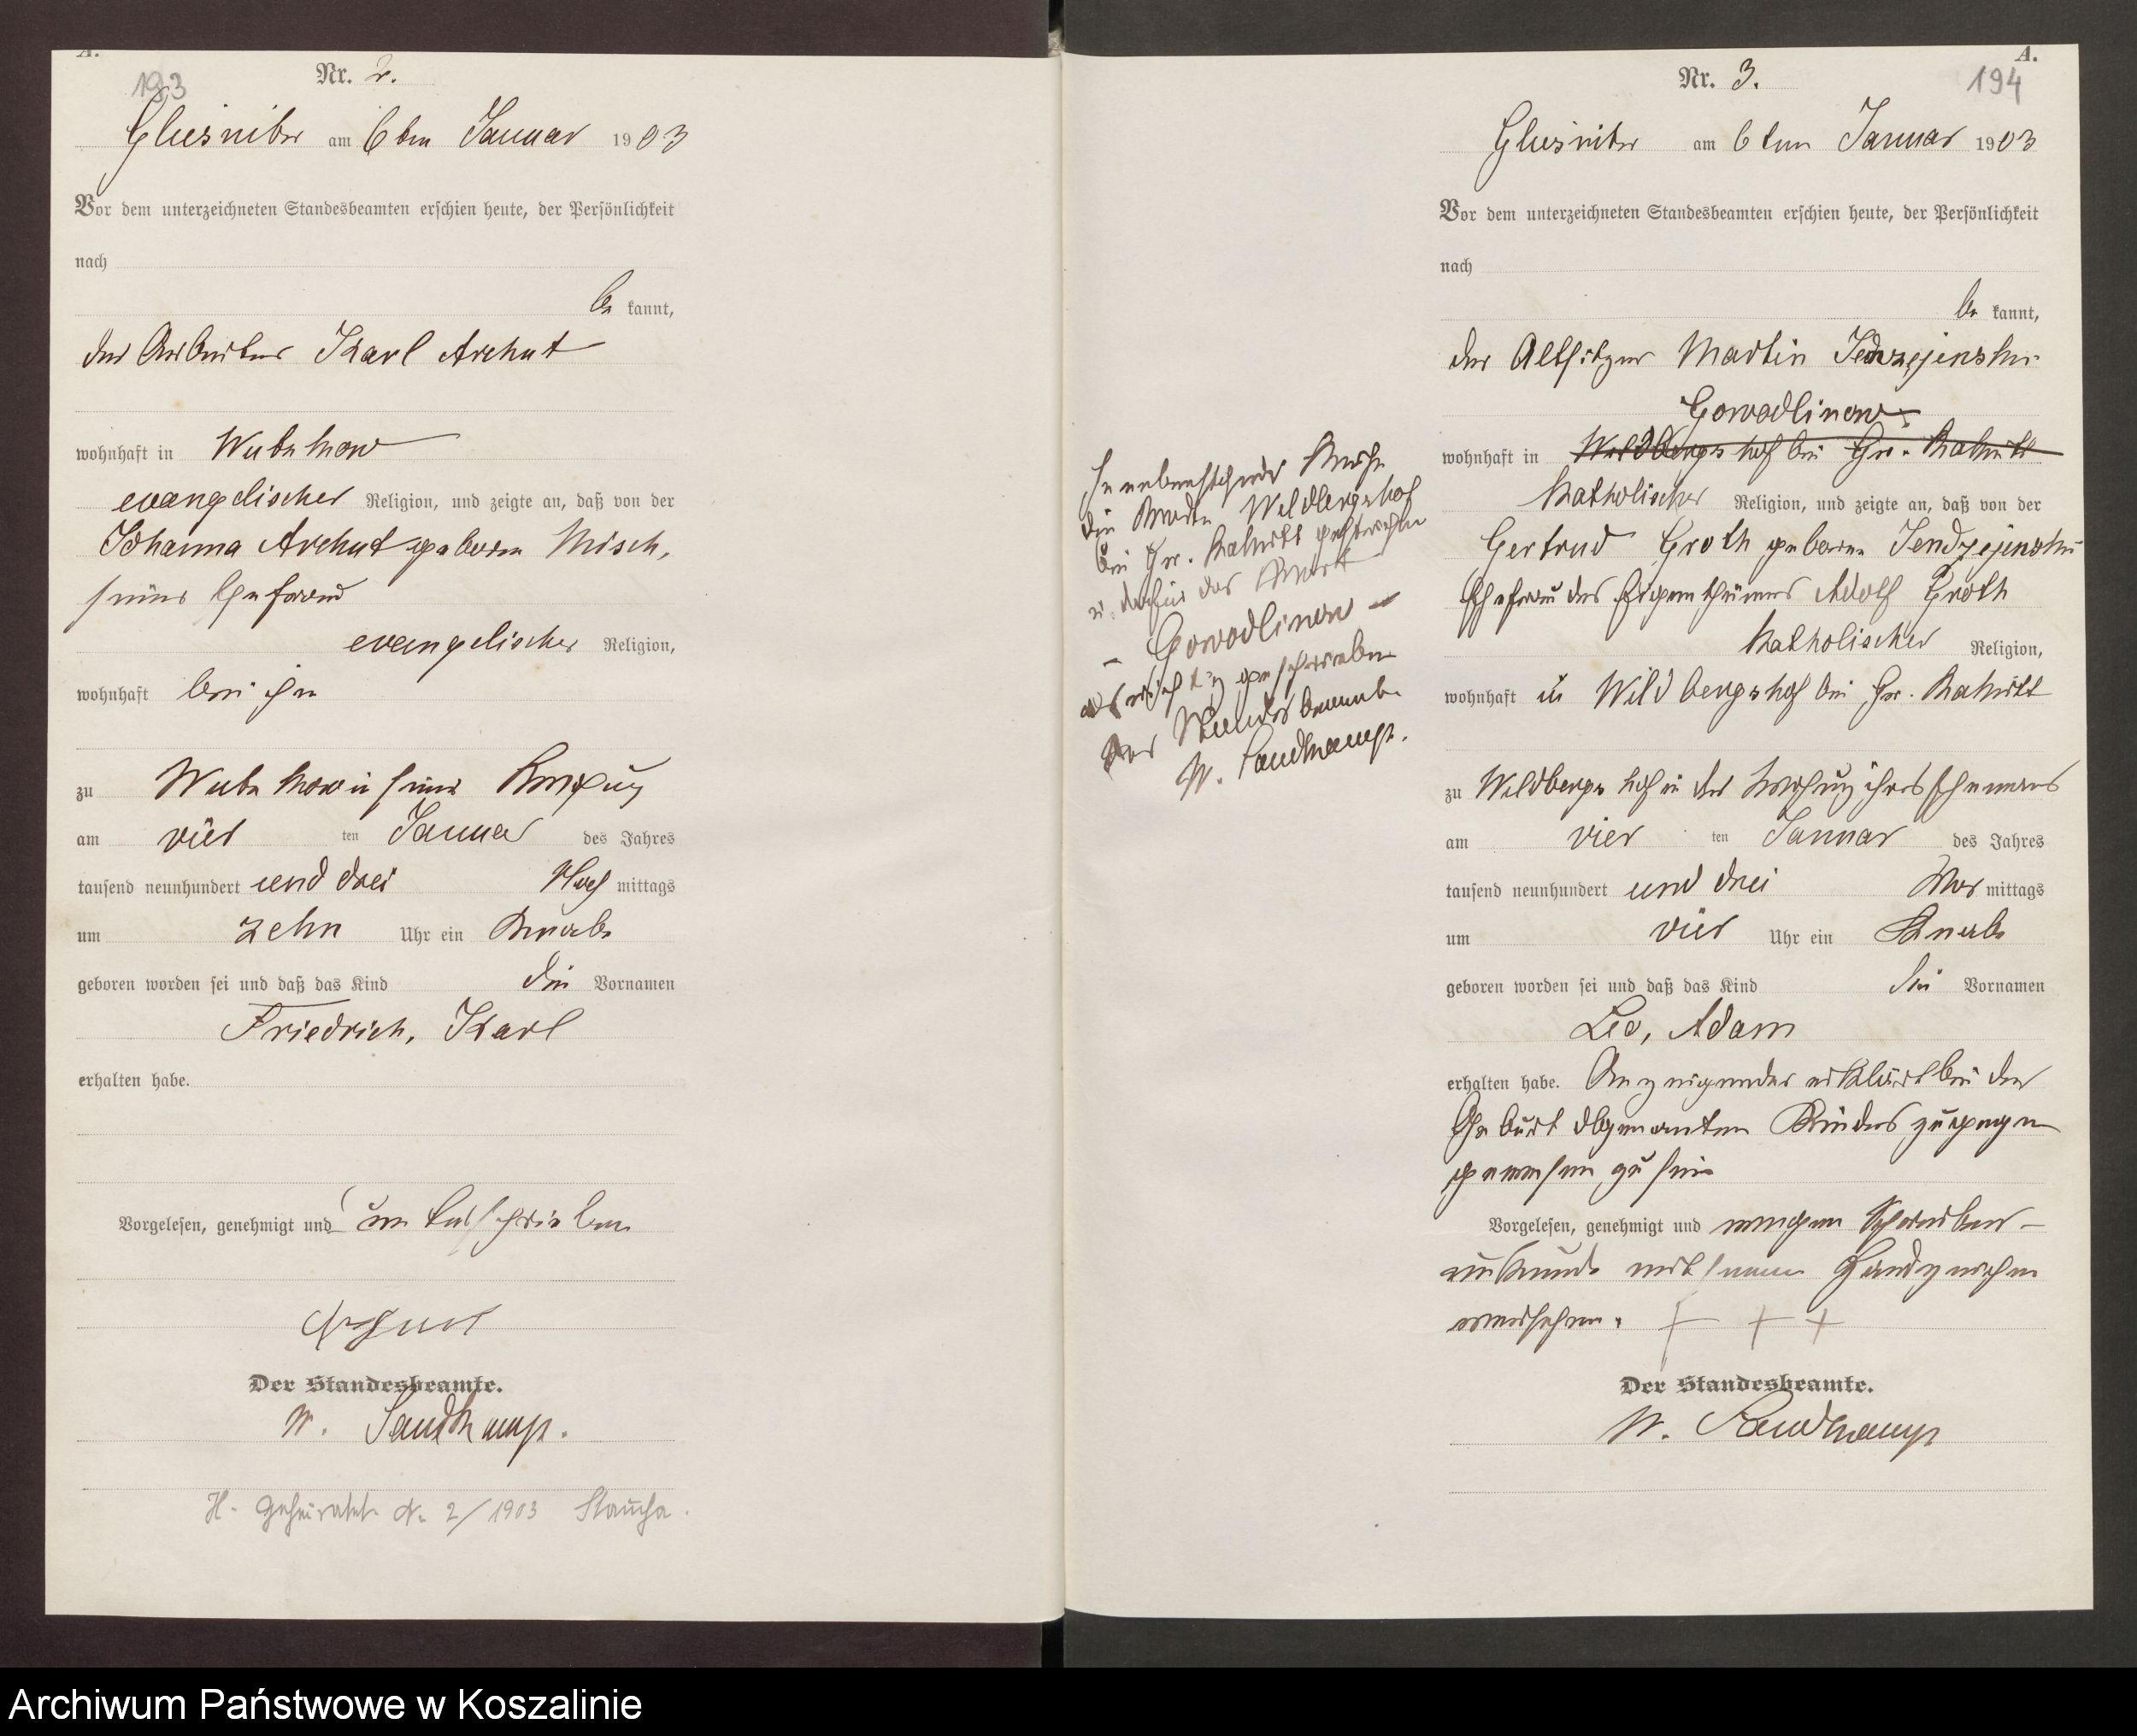 A.
193
Nr. 2.
Glusnitz am 6ten Januar 1903
Vor dem unterzeichneten Standesbeamten erschien heute, der Persönlichkeit
nach
be kannt,
der Arbeiter Karl Archut
wohnhaft in Wutzkow
evangelischer Religion, und zeigte an, daß von der
Johanna Archut geborene Misch,
seiner Ehefrau
evangelischer Religion,
wohnhaft bei ihm
zu Wutzkow in seiner Wohnung
am vier ten Januar des Jahres
tausend neunhundert und drei Nach mittags
um zehn Uhr ein Knabe
geboren worden sei und daß das Kind die Vornamen
Friedrich, Karl
erhalten habe.
Vorgelesen, genehmigt und unterschrieben
Archut
Der Standesbeamte.
W. Sandkamp.
H. Geheiratet Nr. 2/1903
A.
194
Nr. 3.
Glusnitz am 6ten Januar 1903
Vor dem unterzeichneten Standesbeamten erschien heute, der Persönlichkeit
nach
be kannt,
der Altsitzer Martin
Gowodlinow
wohnhaft in Wildbergshof bei Gr. Rakitt
katholischer Religion, und zeigte an, daß von der
Gertrud Groth geborene Jendzejenski
Ehefrau des Eigenthümers Adolf Groth
katholischer Religion,
wohnhaft in Wildbergshof bei Gr. Rakitt
zu Wildbergshof in der Wohnung ihres Ehemanns
am vier ten Januar des Jahres
tausend neunhundert und drei Vor mittags
um vier Uhr ein Knabe
geboren worden sei und daß das Kind die Vornamen
Leo, Adam
erhalten habe. Anzeigender erklärt bei der
Geburt obgenannten Kindes zugegen
gewesen zu sein
Vorgelesen, genehmigt und wegen Schreibens-
unkunde mit seinem Handzeichen
versehen. + + +
Der Standesbeamte.
W. Sandkamp
In nebenstehender Reihe
die Worte Wildbergshof
bei Gr. Rakitt gestrichen
u. dafür das Wort
– Gowodlinow –
als richtig geschrieben
Der Standesbeamte
W. Sandkamp.
Archiwum Państwowe w Koszalinie